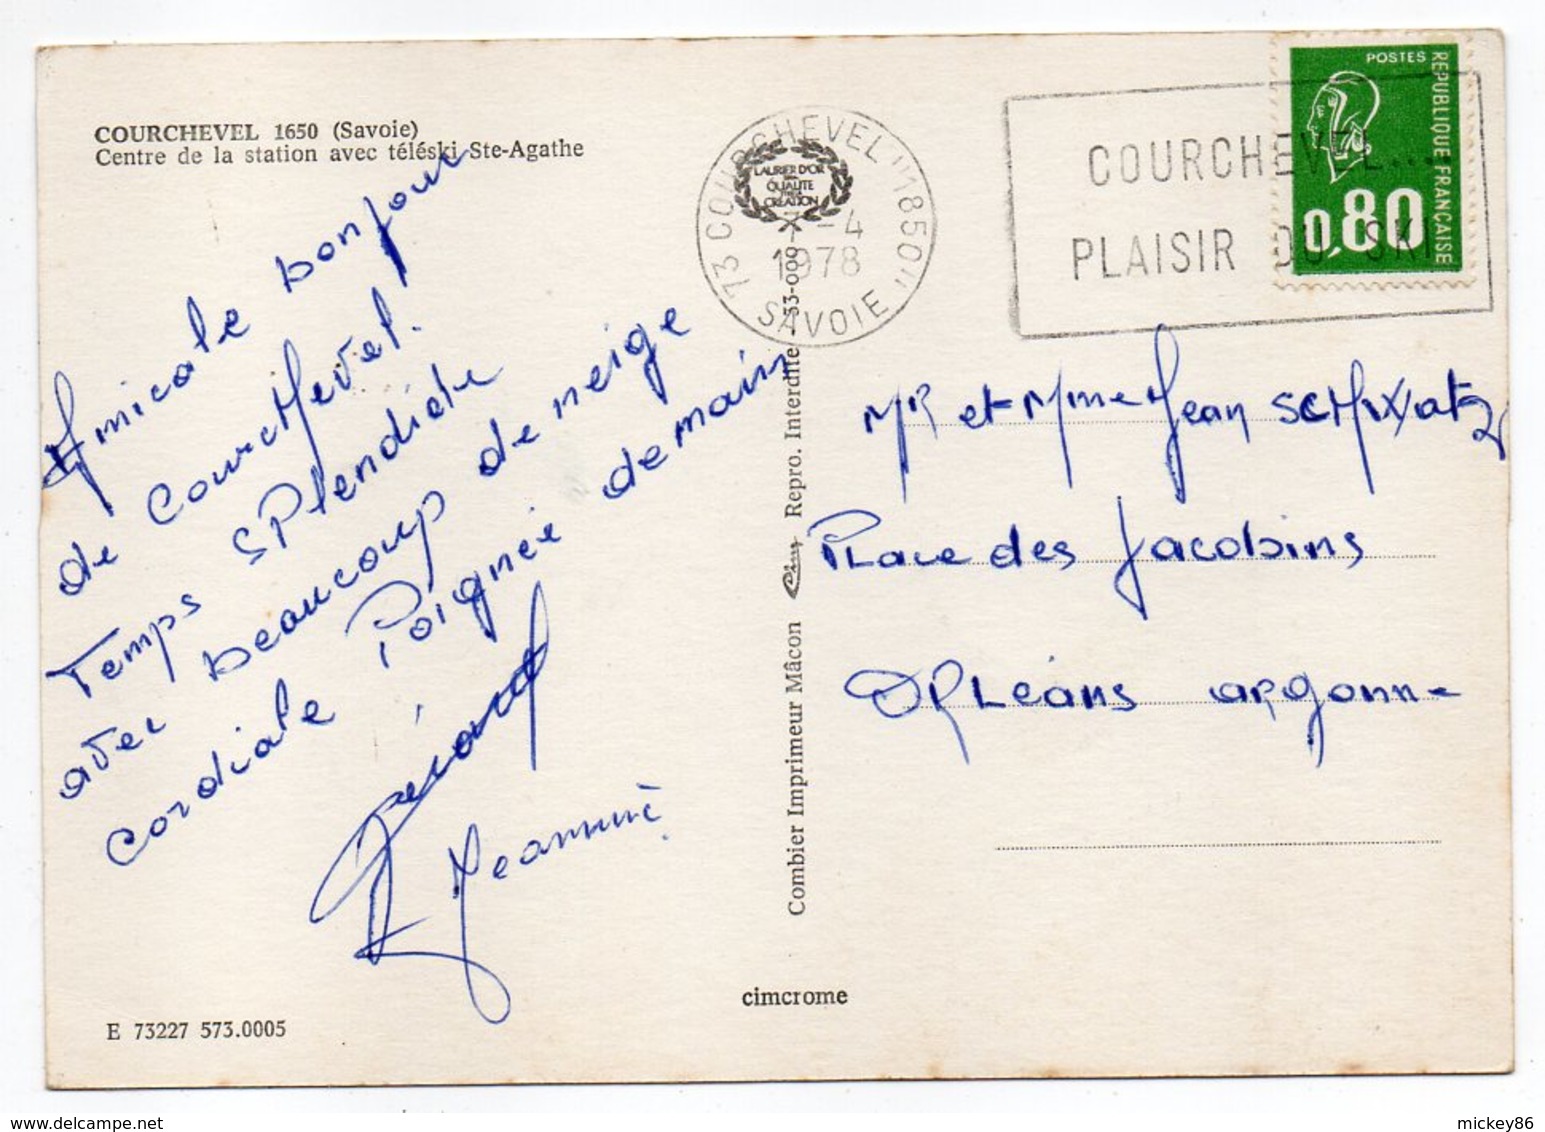 COURCHEVEL 1650 (Savoie)
Centre de la station avec téléski Ste-Agathe
Amicale bonjour
de Courchevel.
Temps splendide
avec beaucoup de neige
cordiale Poignée de main
Gérard
Jeannine
E 73227 573.0005
73 COURCHEVEL "1850"
SAVOIE
7-4
1978
LAURIER D'OR
QUALITE
CREATION
COURCHEVEL...
PLAISIR DU SKI
POSTES
REPUBLIQUE FRANÇAISE
0,80
Combier Imprimeur Mâcon Cim Repro. Interdite - 53-009
cimcrome
MR et Mme Jean
Place des Jacobins
ORLéans argonne
mickey86